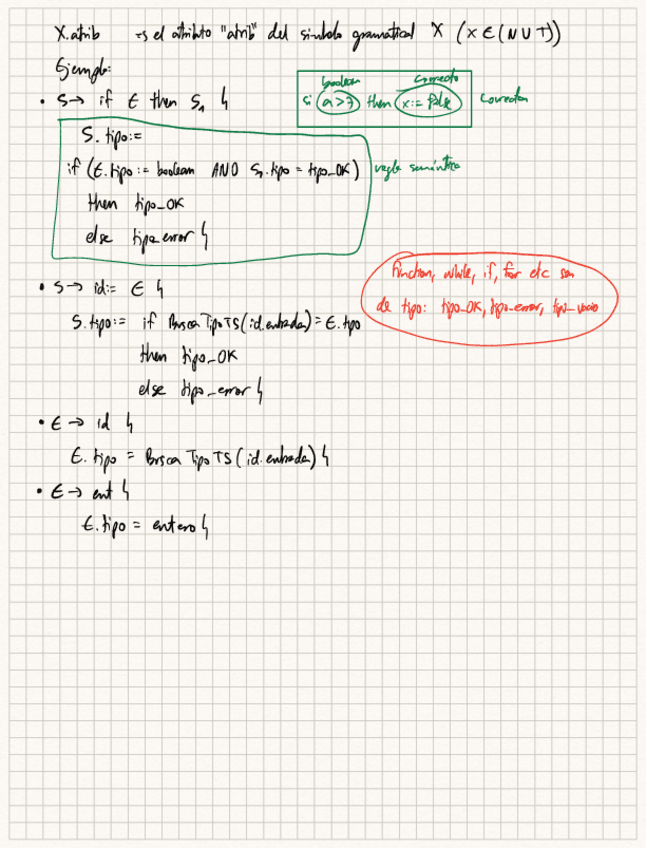 X.atrib es el atributo "atrib" del simbolo gramatical X (X ∈ (N U T))
Ejemplo:
• S → if E then S₁ {
boolean correcto
si (a>7) then (x:= false) correcta
S.tipo:=
if (E.tipo := boolean AND S₁.tipo = tipo_OK) regla semántica
then tipo_OK
else tipo_error }
function, while, if, for etc son
de tipo: tipo_OK, tipo_error, tipo_vacio
• S → id:= E {
S.tipo:= if BuscaTipoTS(id.entrada) = E.tipo
then tipo_OK
else tipo_error }
• E → id {
E.tipo = BuscaTipoTS(id.entrada) }
• E → ent {
E.tipo = entero }